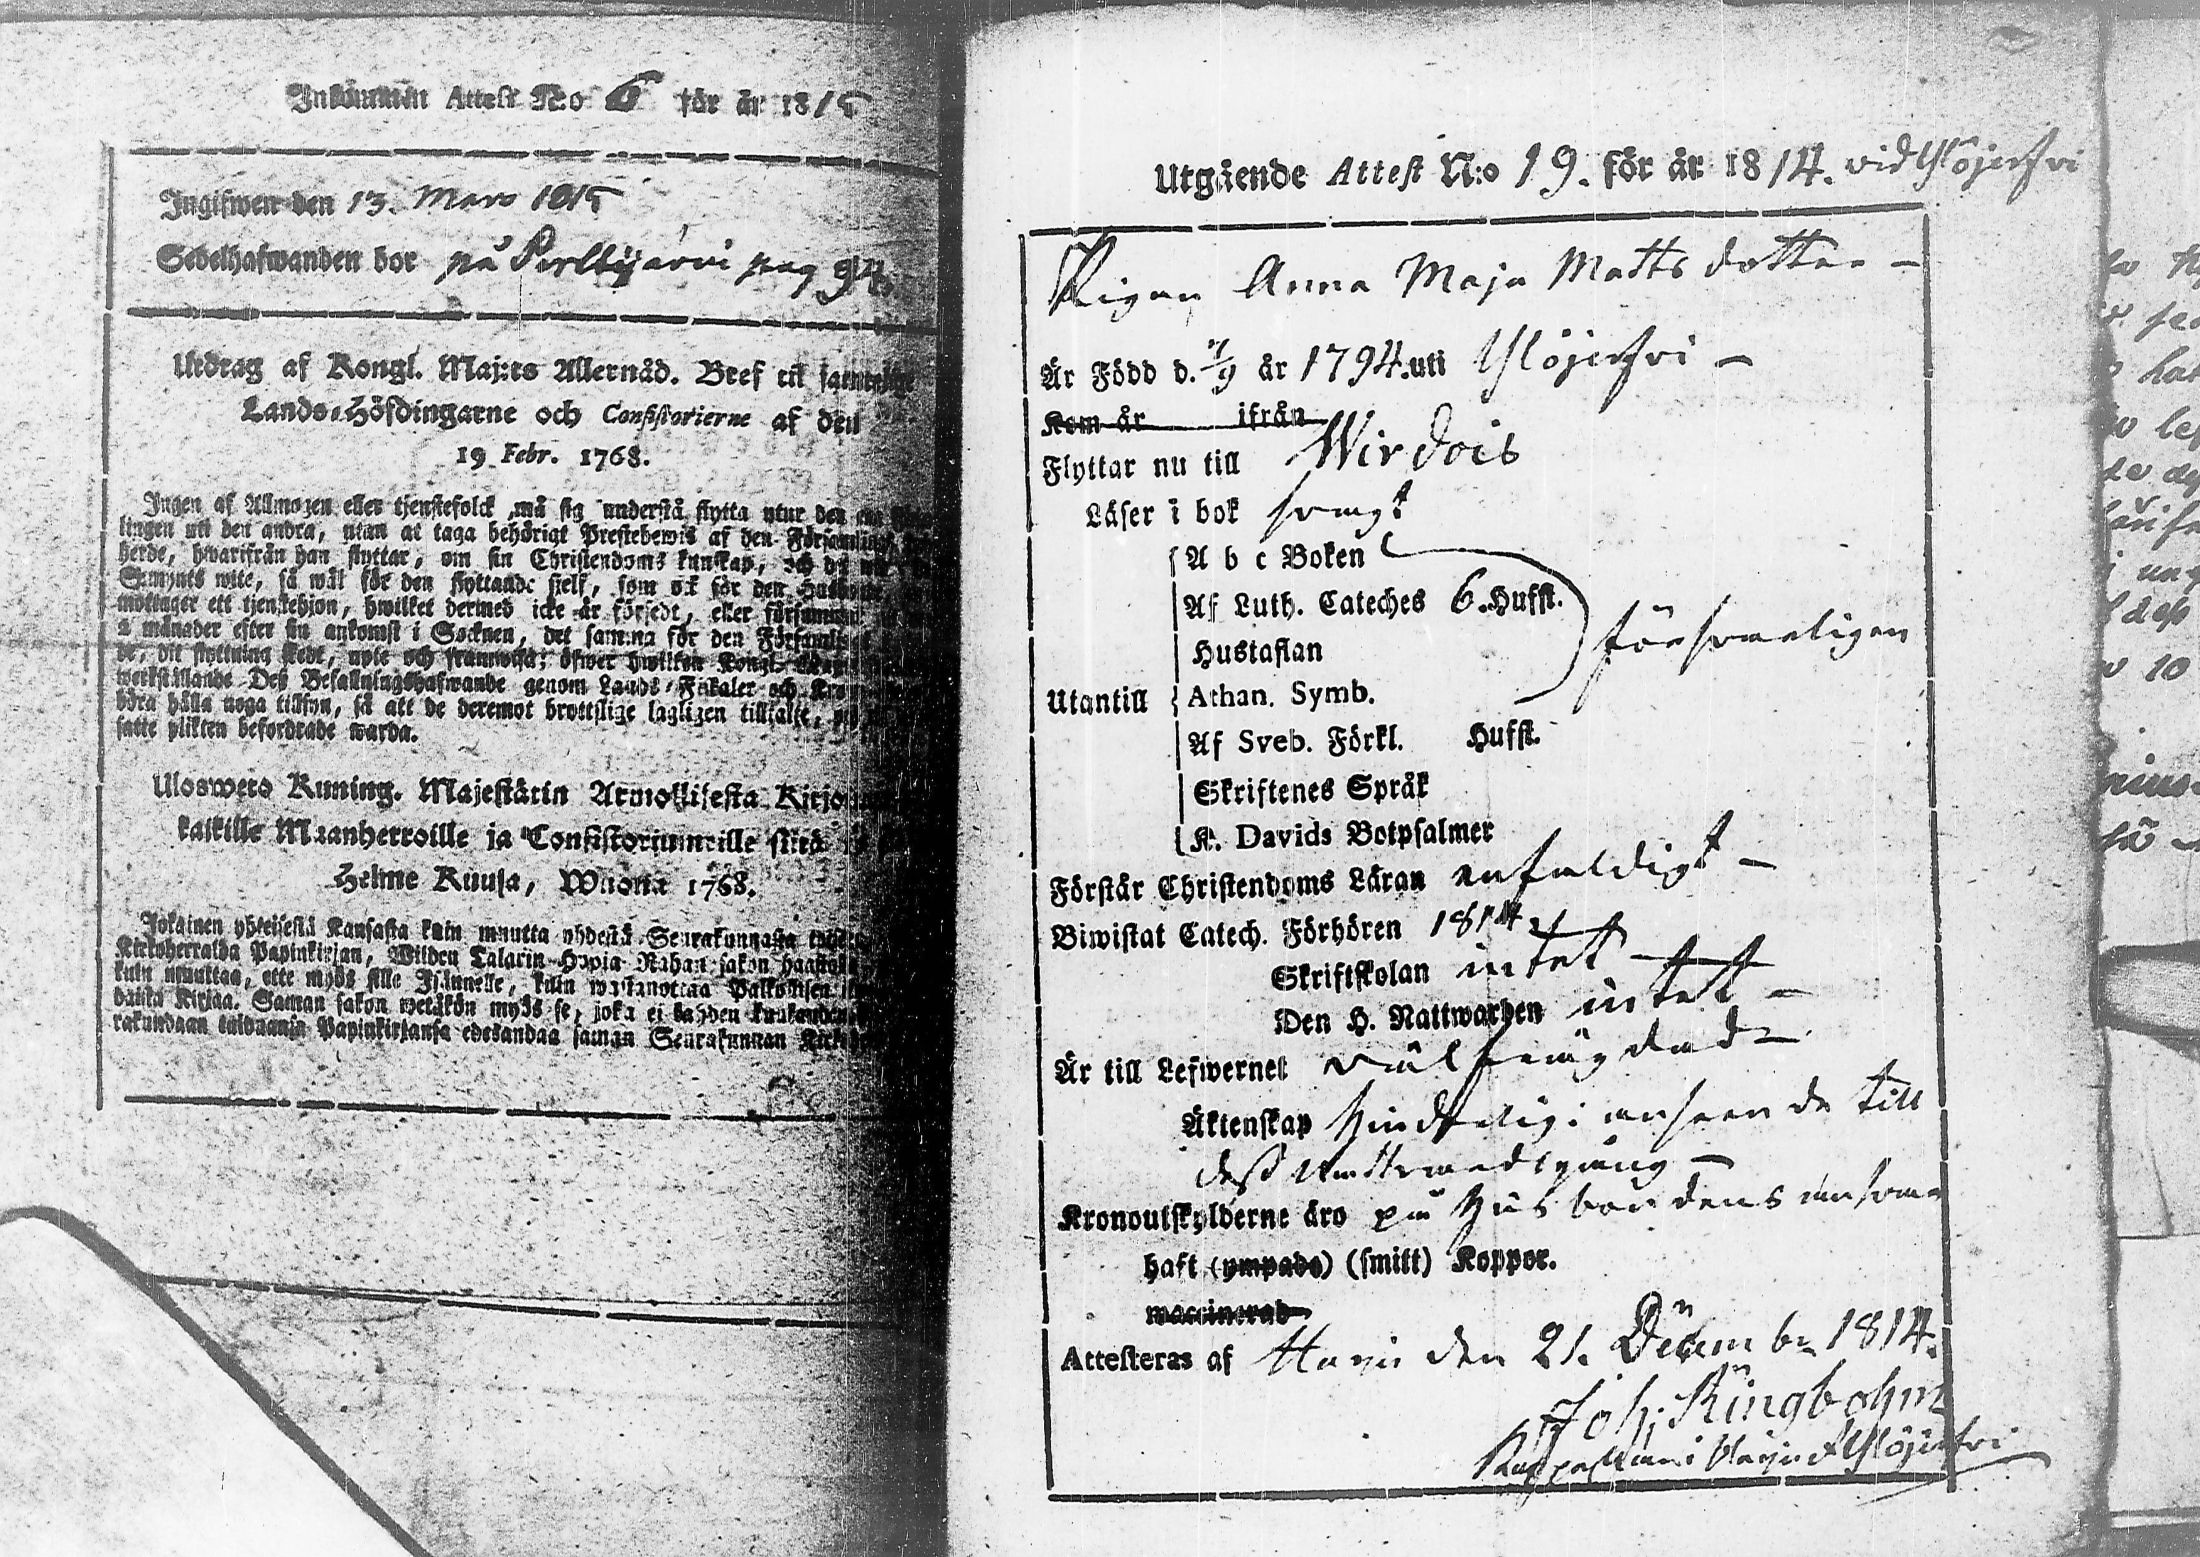 Inkommen Attest N:o 6 för år 1815
Ingifwen den 13. Mars 1815
Sedelhafwanden bor på pag 94.
Utdrag af Kongl. Maj:ts Allernåd. Bref til samtelige
Lands-Höfdingarne och Consistorierne af den
19 Febr. 1768.
Ingen af Allmogen eller tjenstefolck må sig understå flytta utur den ena
lingen uti den andra, utan at taga behörigt Prestebewis af den Församlings
herde, hwarifrån han flyttar, om sin Christendoms kunskap, och
wite, så wäl för den flyttande sjelf, som ock för den Husbonde
mottager ett tjenstehjon, hwilket dermed icke är försedt, eller försummar
2 månader efter sin ankomst i Socknen, det samma för den
de, dit flyttning skedt, upte och framwisa; öfwer hwilken Kongl.
werkställande Deß Befallningshafwande genom Lands-Fiskaler och
böra hålla noga tillsyn, så att de deremot brottslige lagligen tilltalte,
satte plikten befordrade warda.
Uloswero Kuning. Majestätin Armollisesta Kirjo
kaikille Maanherroille ja Consistoriumeille siitä
Helme Kuusa, Wuonna 1768.
Jokainen yhteisestä Kansasta kuin muutta yhdestä Seurakunnasta
Kirkoherralda Papinkirjan, Wiiden Talarin Hopia Rahan sakon haastolla
kuin muuttaa, ette myös sille Isännelle, kuin wastanottaa Palkollisen
däistä Kirjaa. Saman sakon wetäkön myös se, joka ei kahden kuukauden
rakundaan tulduansa Papinkirjansa edesandaa saman Seurakunnan
Utgående Attest N:o 19. för år 1814. vid Ylöjerfvi
Pigan Anna Maja Mattsdotter –
Är Född d. 7/9 år 1794. uti Ylöjerfvi –
Kom år ifrån
Flyttar nu till Wirdois
Läser i bok svagt
A b c Boken
Af Luth. Cateches 6. Hufst.
Hustaflan
försvarligen
Utantill
Athan. Symb.
Af Sveb. Förkl. Hufst.
Skriftenes Språk
K. Davids Botpsalmer
Förstår Christendoms Läran enfaldigt –
Biwistat Catech. Förhören 1814
Skriftskolan intet –
Den H. Nattwarden intet –
Är till Lefwernet välfrägdad –
Äktenskap hindslig i anseende till
deß
Kronoutskylderne äro på Husbondens ansvar
haft (ympade) (smitt) Koppor.
waccinerad
Attesteras af Harju den 21. Decembr 1814.
Joh: Ringbohm
Kappellan i Harju & Ylöjerfvi